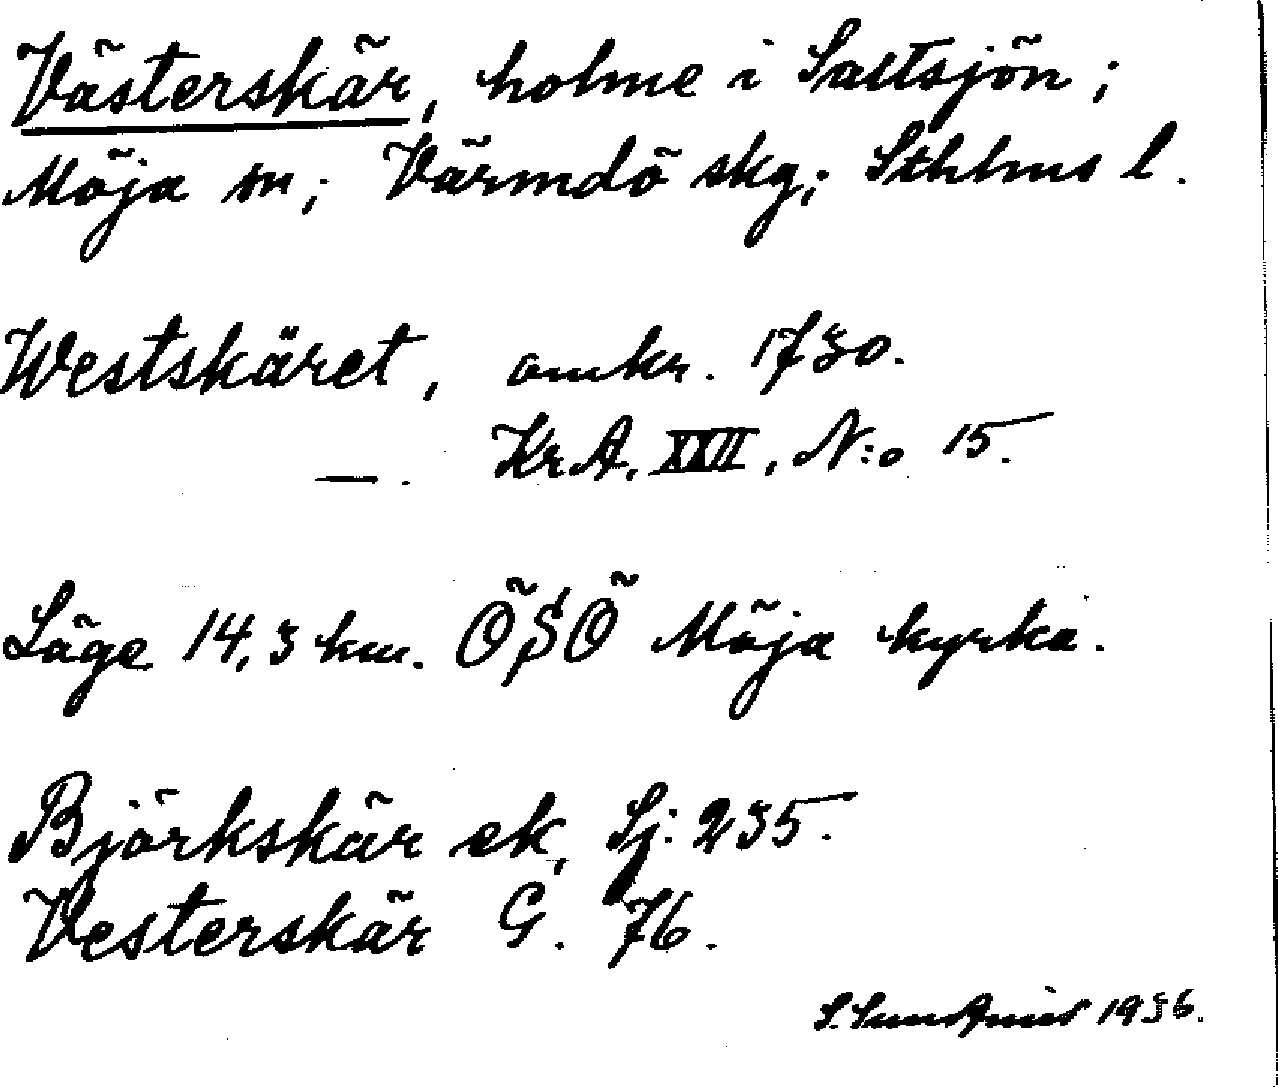 Västerskär, holme i Saltsjön;
Möja sn; Värmdö skg; Sthlms l.
Westskäret, omkr. 1730.
—. KrA, XXII, N:o 15.
Läge 14,3 km. ÖSÖ Möja kyrka.
Björkskär ek, Sj: 235.
Vesterskär G. 76.
1936.